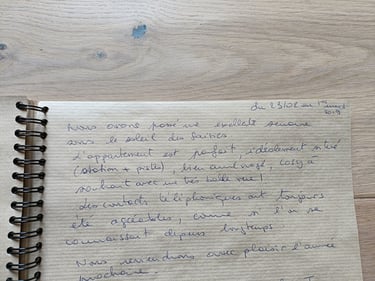 du 23/02 au 1er mars 2019
Nous avons passé une excellente semaine
sous le soleil des Saisies
L'appartement est parfait, idéalement situé
(station + pistes), bien aménagé, cosy à
souhait avec une très belle vue !
Les contacts téléphoniques ont toujours
été agréables, comme si l'on se
connaissait depuis longtemps
Nous reviendrons avec plaisir l'année
prochaine.